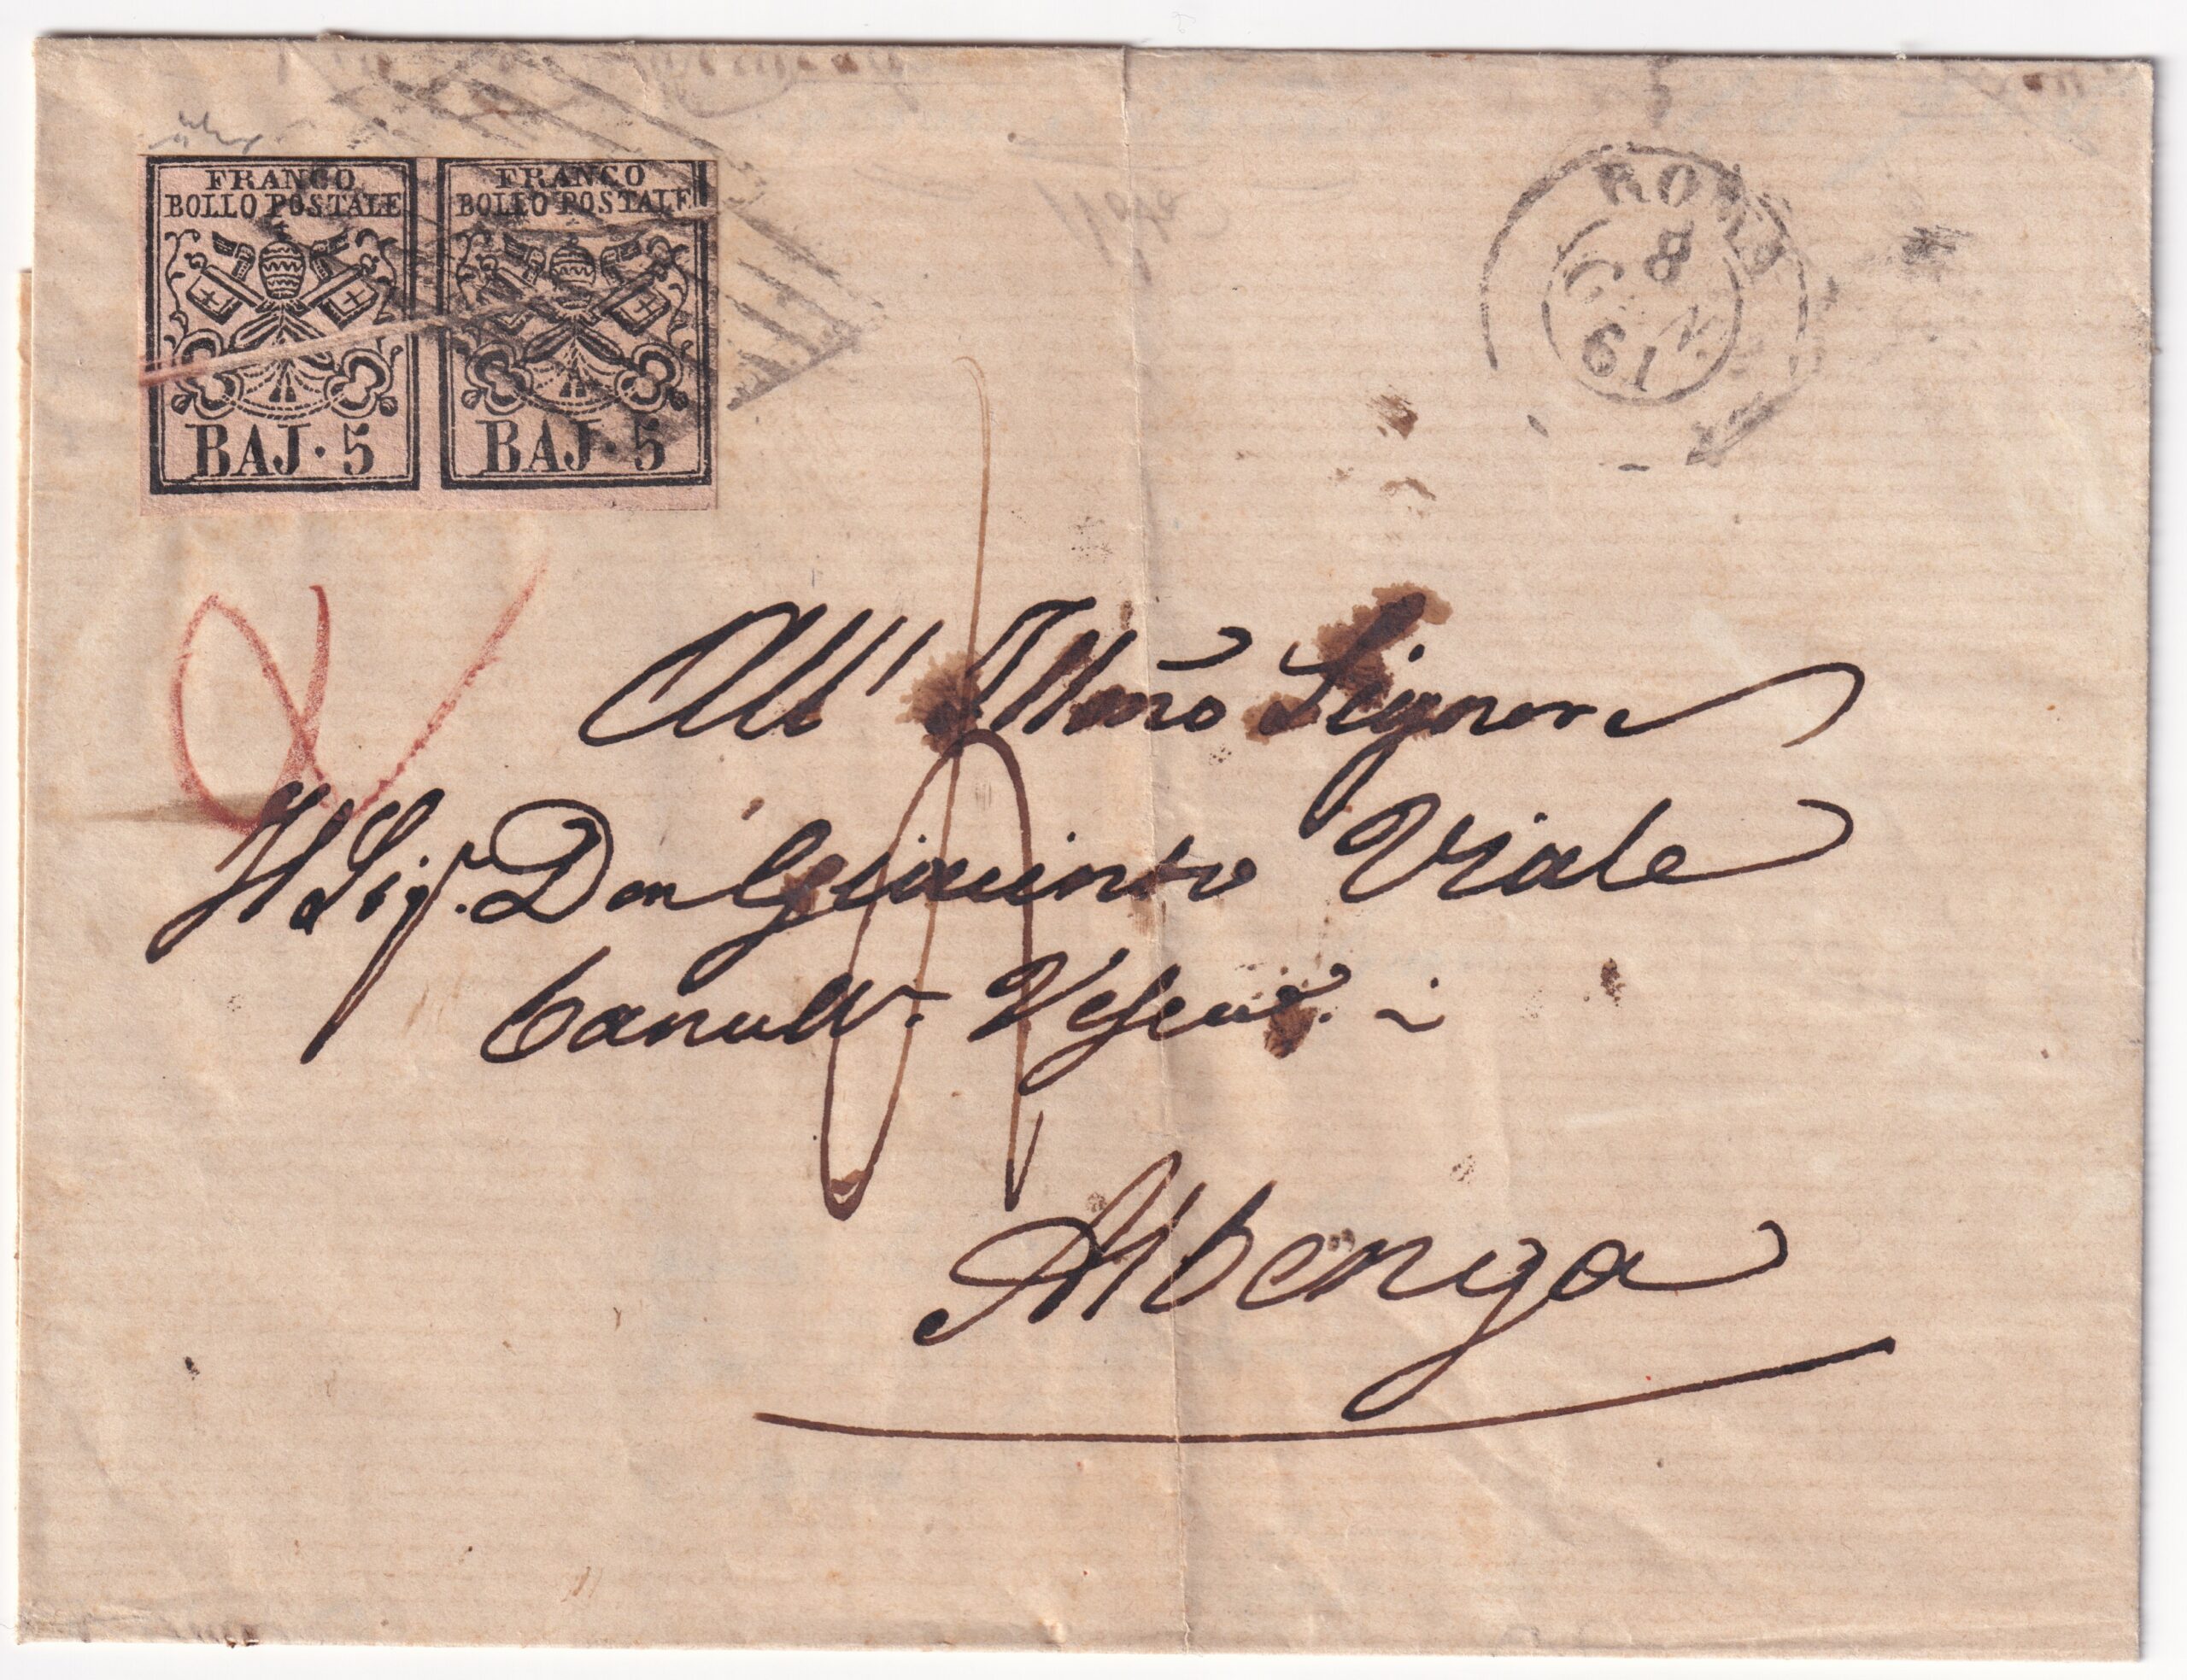 FRANCO
BOLLO POSTALE
BAJ · 5
FRANCO
BOLLO POSTALE
BAJ · 5
ROMA
8
GEN.
61
All' Illmo Signore
Il Sigr. Don Giacinto Viale
Vescov.
Albenga